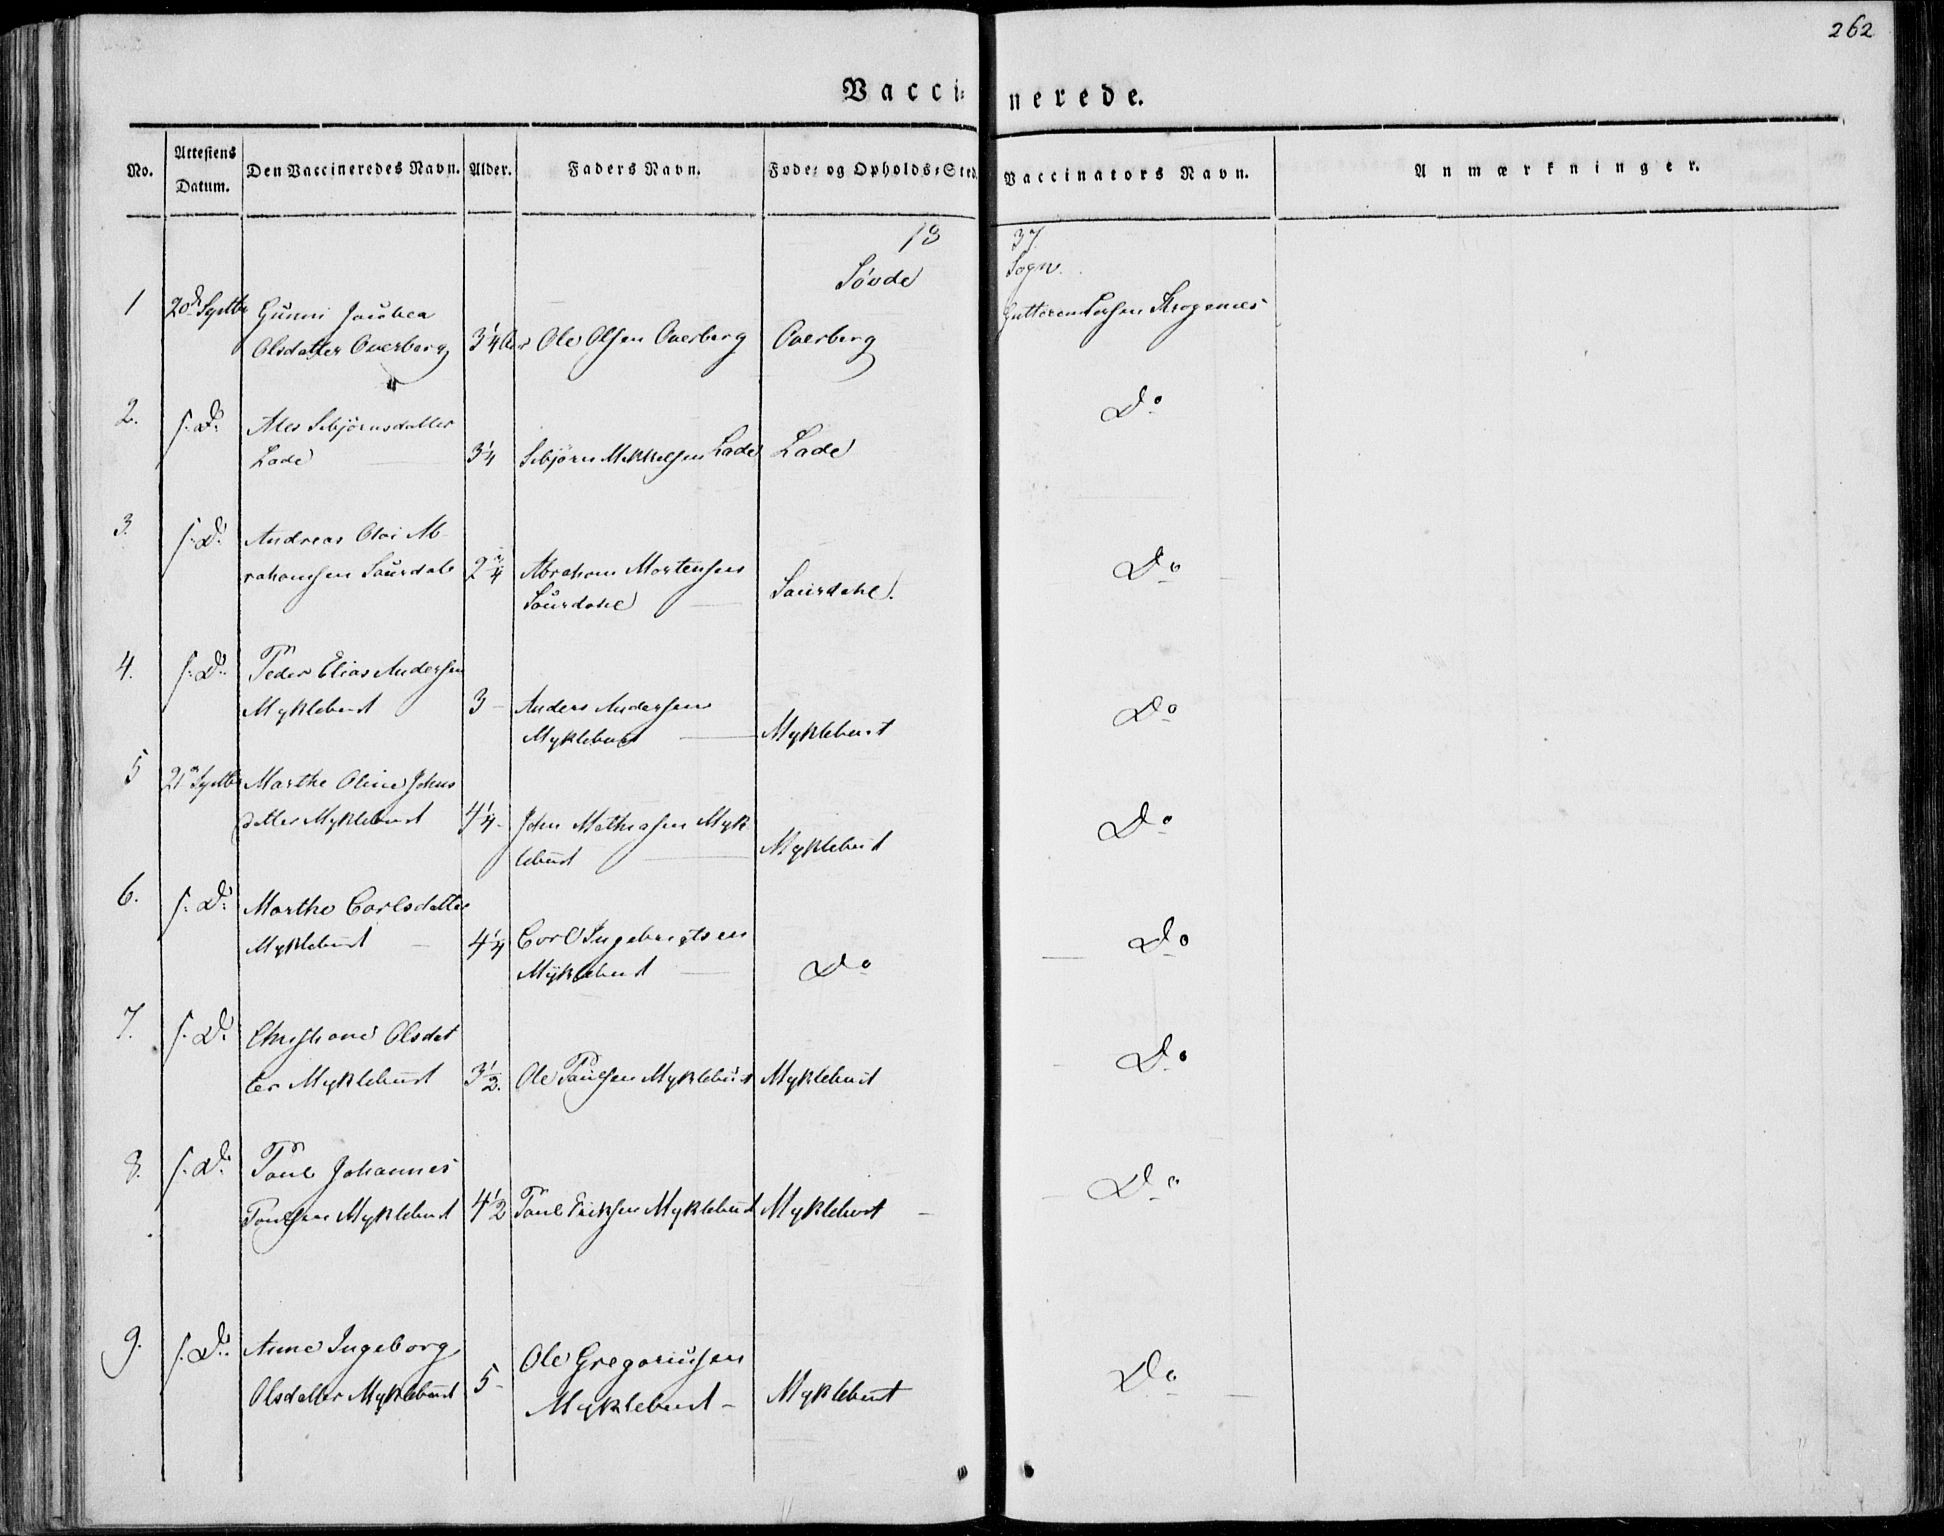 262
Vacci= nerede.
No. Attestens Datum. Den Vaccineredes Navn. Alder. Faders Navn. Føde= og Opholds=Sted. Vaccinators Navn. Anmærkninger.
18 37.
Søvde Sogn.
1 20d Septbr Gunni Jacobea Guttorm Persen Krogenæs
Olsdatter Overberg 3 1/4 Aar Ole Olsen Overberg Overberg
2. s. D. Ales Sebjörnsdatter Do
Lade 3 1/4 Sebjörn Mikkelsen Lade Lade
3. s. D. Andreas Oloi Ab-
rahamsen Saurdale 2 3/4 Abraham Mortensen Do
Saurdahl Saurdahl.
4. s. D. Peder Elias Andersen
Myklebust 3 - Anders Andersen Do
Myklebust Myklebust
5 21d Septbr Marthe Oline Johns
datter Myklebust 4 1/4 - John Mathiasen Myk- Do
lebust Myklebust
6. s. D. Marthe Carlsdatter
Myklebust 4 1/4 Carl Ingebrigtsen Do
Myklebust Do
7. s. D. Christiane Olsdat
ter Myklebust 3 1/2. Ole Paulsen Myklebust Myklebust Do
8. s. D. Paul Johannes Do
Paulsen Myklebust 4 1/2 Paul Eriksen Myklebust Myklebust
9. s. D. Anne Ingeborg Ole Gregoriusen Do
Olsdatter Myklebust 5 - Myklebust - Myklebust